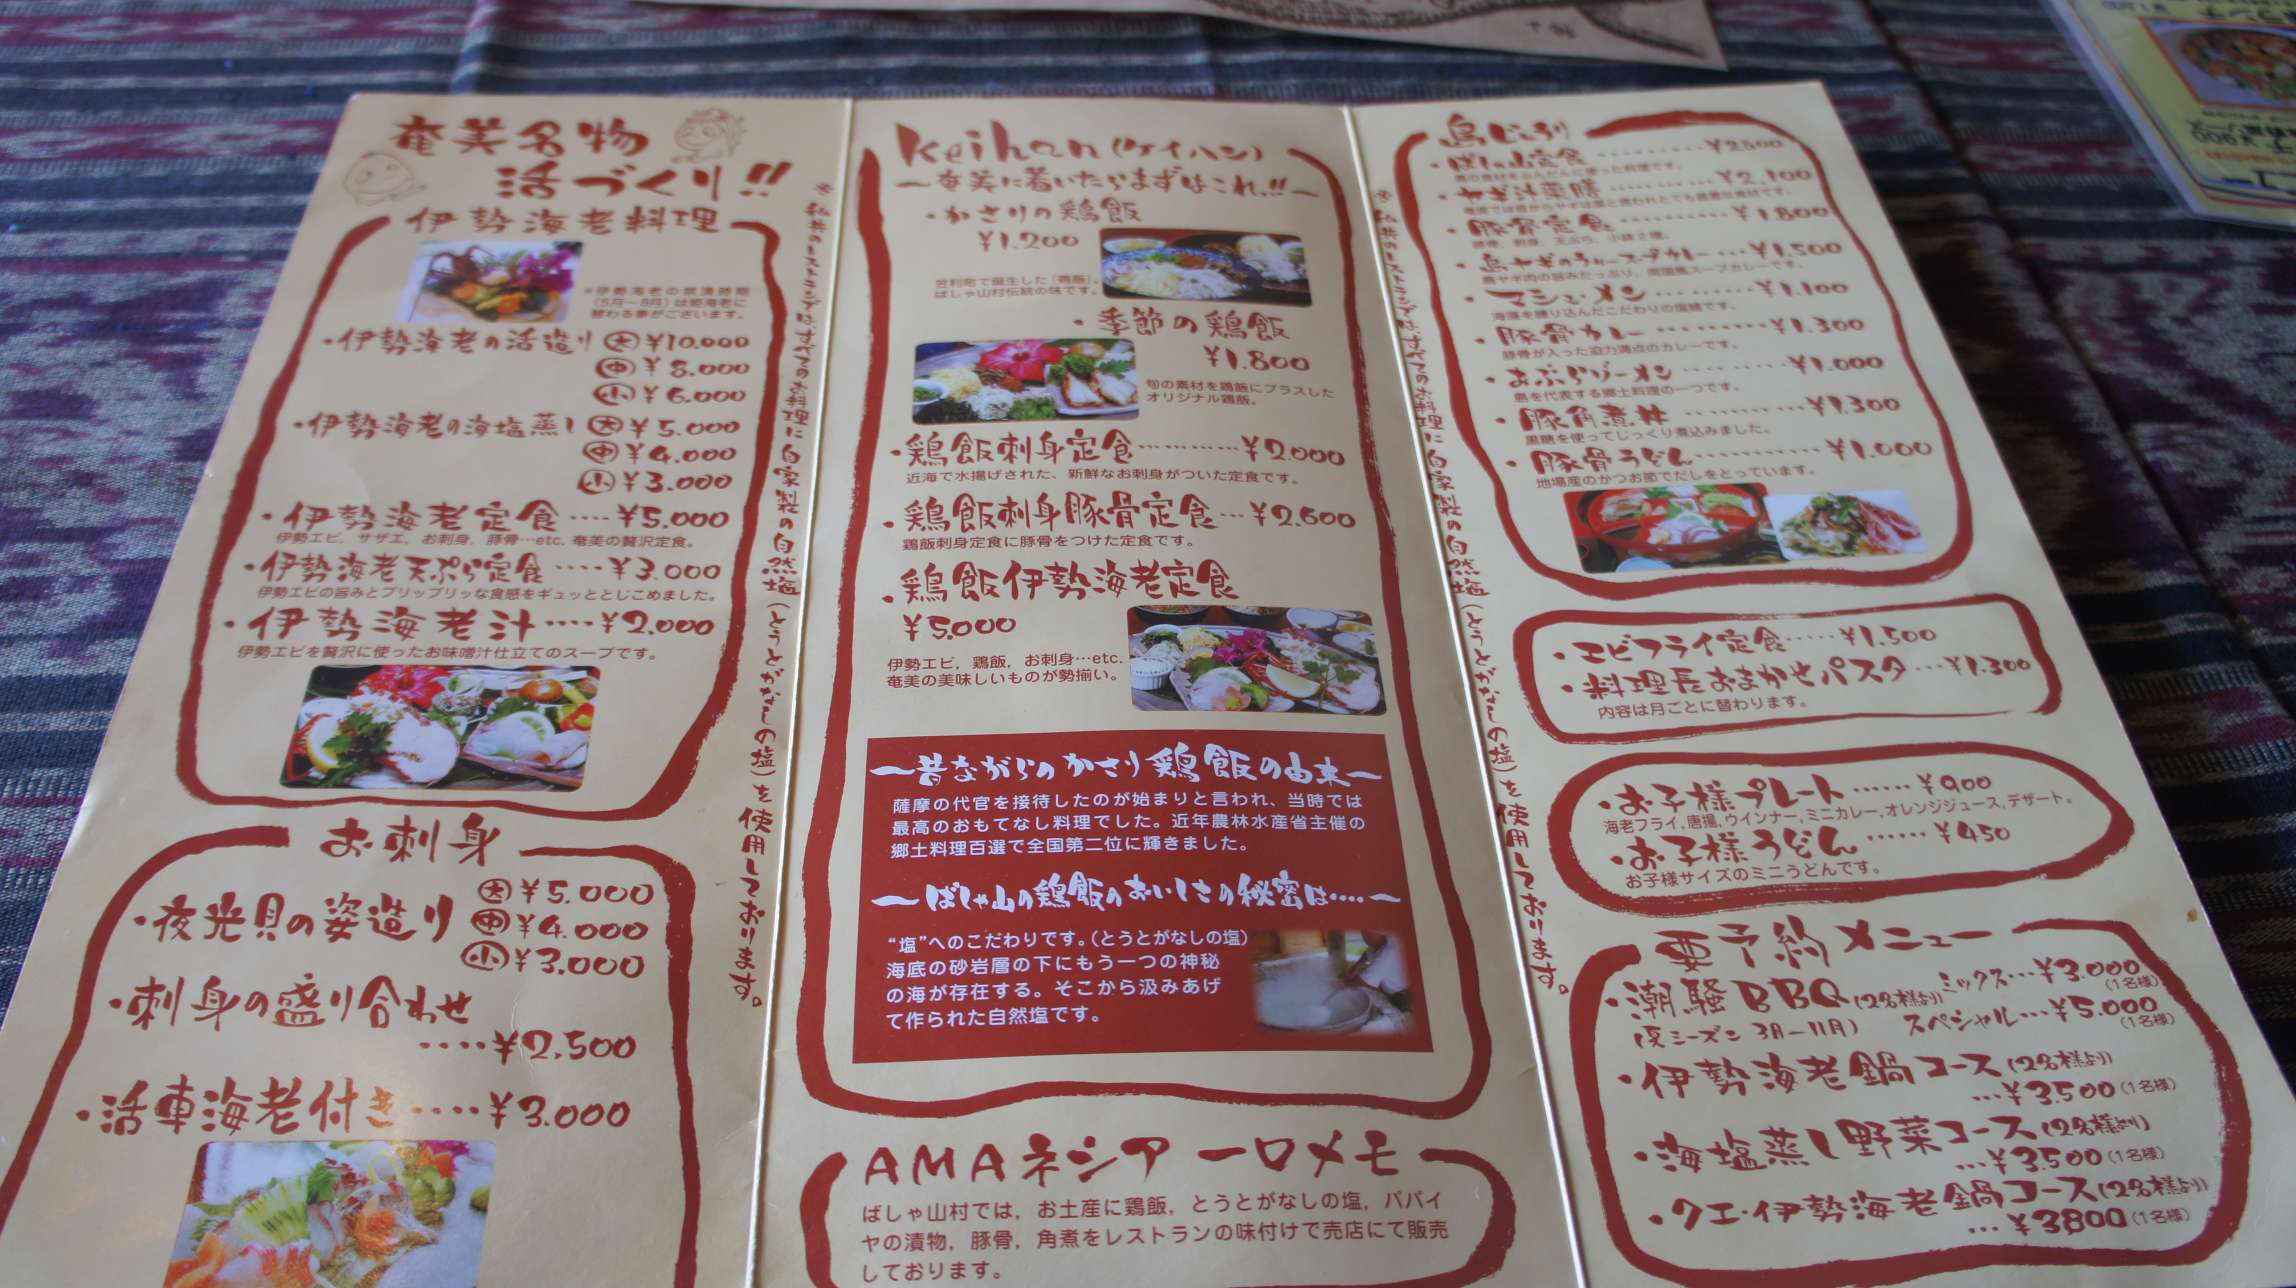 奄美名物
活づくり!!
伊勢海老料理
*伊勢海老の禁漁時期
(5月〜8月)は姫海老に
替わる事がございます。
・伊勢海老の活造り 大 ¥10.000
中 ¥8.000
小 ¥6.000
・伊勢海老の海塩蒸し 大 ¥5.000
中 ¥4.000
小 ¥3.000
・伊勢海老定食‥‥¥5.000
伊勢エビ，サザエ，お刺身，豚骨…etc. 奄美の贅沢定食。
・伊勢海老天ぷら定食‥‥¥3.000
伊勢エビの旨みとプリップリッな食感をギュッととじこめました。
・伊勢海老汁‥‥¥2.000
伊勢エビを贅沢に使ったお味噌汁仕立てのスープです。
お刺身
・夜光貝の姿造り 大 ¥5.000
中 ¥4.000
小 ¥3.000
・刺身の盛り合わせ
‥‥¥2,500
・活車海老付き‥‥¥3.000
※私共のレストランではすべてのお料理に自家製の自然塩(とうとがなしの塩)を使用しております。
Keihan(ケイハン)
〜奄美に着いたらまずはこれ!!〜
・かさりの鶏飯
¥1.200
笠利町で誕生した「鶏飯」。
ばしゃ山村伝統の味です。
・季節の鶏飯
¥1.800
旬の素材を鶏飯にプラスした
オリジナル鶏飯。
・鶏飯刺身定食…………¥2.000
近海で水揚げされた、新鮮なお刺身がついた定食です。
・鶏飯刺身豚骨定食…¥2.600
鶏飯刺身定食に豚骨をつけた定食です。
・鶏飯伊勢海老定食
¥5.000
伊勢エビ，鶏飯，お刺身…etc.
奄美の美味しいものが勢揃い。
〜昔ながらのかさり鶏飯の由来〜
薩摩の代官を接待したのが始まりと言われ、当時では
最高のおもてなし料理でした。近年農林水産省主催の
郷土料理百選で全国第二位に輝きました。
〜ばしゃ山の鶏飯のおいしさの秘密は‥‥〜
“塩”へのこだわりです。(とうとがなしの塩)
海底の砂岩層の下にもう一つの神秘
の海が存在する。そこから汲みあげ
て作られた自然塩です。
AMAネシア 一口メモ
ばしゃ山村では，お土産に鶏飯，とうとがなしの塩，パパイ
ヤの漬物，豚骨，角煮をレストランの味付けで売店にて販売
しております。
※私共のレストランではすべてのお料理に自家製の自然塩(とうとがなしの塩)を使用しております。
・ばしゃ山定食 ¥2500
島の食材をふんだんに使った料理です。
・ヤギ汁薬膳 ¥2,100
・豚骨定食 ¥1800
豚骨，刺身，天ぷら，小鉢2種。
・島ヤギのラリースープカレー…¥1,500
島ヤギ肉の旨みたっぷり，南国風スープカレーです。
・マシュ・メン ¥1.100
海藻を練り込んだこだわりの塩麺です。
・豚骨カレー ¥1.300
豚骨が入った迫力満点のカレーです。
・あぶらゾーメン ¥1.000
島を代表する郷土料理の一つです。
・豚角煮丼 ¥1,300
黒糖を使ってじっくり煮込みました。
・豚骨うどん ¥1.000
地場産のかつお節でだしをとっています。
・エビフライ定食‥‥‥¥1.500
・料理長おまかせパスタ…¥1.300
内容は月ごとに替わります。
・お子様プレート……¥900
海老フライ，唐揚，ウインナー，ミニカレー，オレンジジュース，デザート。
・お子様うどん……¥450
お子様サイズのミニうどんです。
要予約メニュー
・潮騒BBQ(2名様より) ミックス…¥3.000(1名様)
(夏シーズン 3月〜11月) スペシャル…¥5.000(1名様)
・伊勢海老鍋コース(2名様より)
…¥3500(1名様)
・海塩蒸し野菜コース(2名様より)
…¥3.500(1名様)
・クエ・伊勢海老鍋コース(2名様より)
…¥3800(1名様)